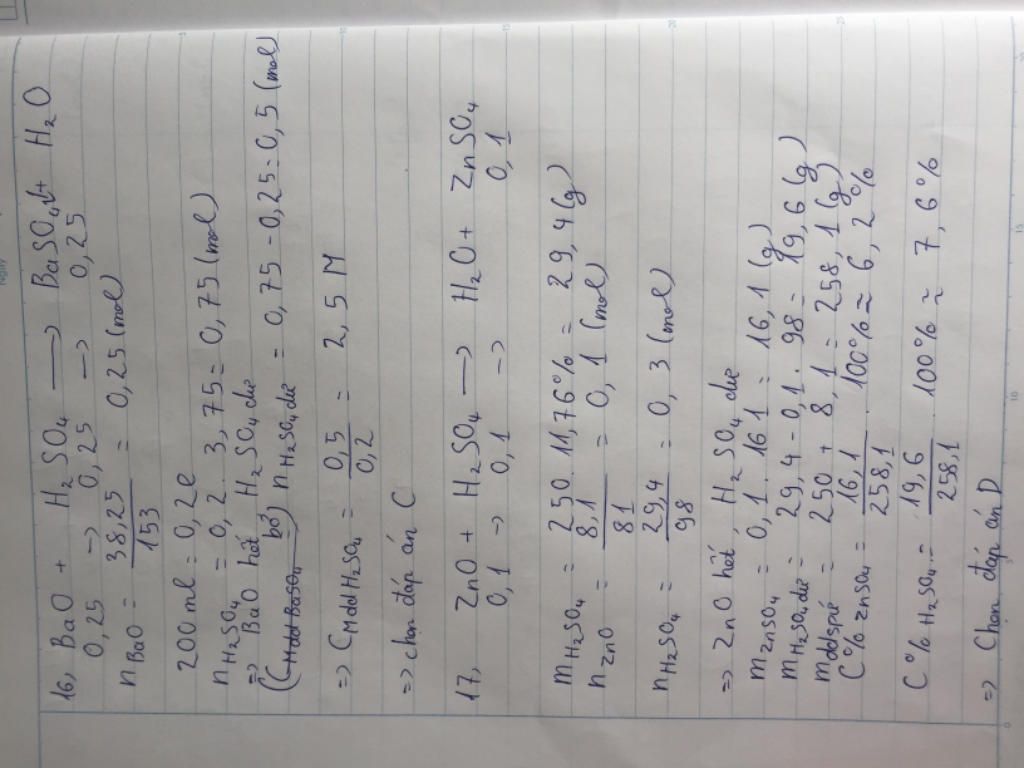 16, BaO + H₂SO₄ ⟶ BaSO₄↓ + H₂O
0,25 → 0,25 → 0,25
n BaO = 38,25/153 = 0,25 (mol)
200 ml = 0,2l
n H₂SO₄ = 0,2 . 3,75 = 0,75 (mol)
=> BaO hết, H₂SO₄ dư
(C Mdd BaSO₄ bỏ) n H₂SO₄ dư = 0,75 - 0,25 = 0,5 (mol)
=> C Mdd H₂SO₄ = 0,5/0,2 = 2,5 M
=> chọn đáp án C
17, ZnO + H₂SO₄ ⟶ H₂O + ZnSO₄
0,1 → 0,1 → 0,1
m H₂SO₄ = 250 . 11,76% = 29,4 (g)
n ZnO = 8,1/81 = 0,1 (mol)
n H₂SO₄ = 29,4/98 = 0,3 (mol)
=> ZnO hết, H₂SO₄ dư
m ZnSO₄ = 0,1 . 161 = 16,1 (g)
m H₂SO₄ dư = 29,4 - 0,1 . 98 = 19,6 (g)
m ddspứ = 250 + 8,1 = 258,1 (g)
C% ZnSO₄ = 16,1/258,1 . 100% ≈ 6,2%
C% H₂SO₄ = 19,6/258,1 . 100% ≈ 7,6%
=> Chọn đáp án D